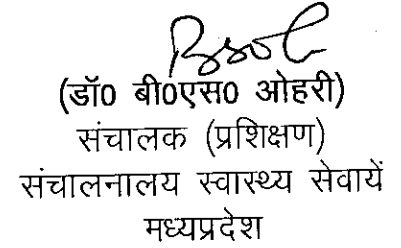 (डॉ0 बी0एस0 ओहरी)
संचालक (प्रशिक्षण)
संचालनालय स्वास्थ्य सेवायें
मध्यप्रदेश